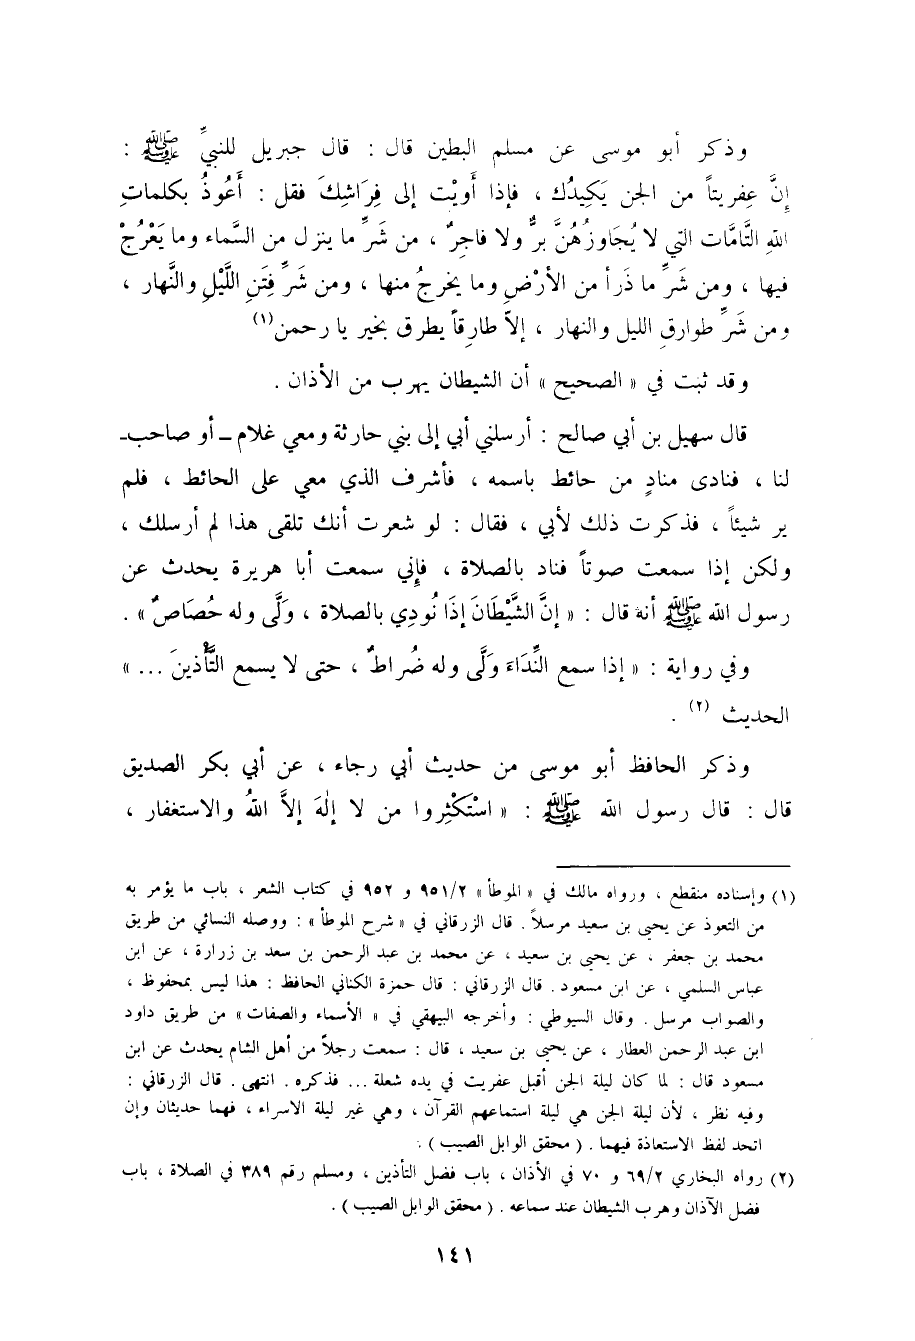 وذكر أبو موسى عن مسلم البطين قال : قال جبريل للنبيِّ ﷺ :
إِنَّ عِفريتاً من الجن يَكِيدُك ، فإذا أَويْت إلى فِرَاشِكَ فقل : أَعُوذُ بكلماتِ
اللهِ التَّامَّات التي لا يُجَاوزُهُنَّ برٌّ ولا فاجِرٌ ، من شَرِّ ما ينزل من السَّماء وما يَعْرُجْ
فيها ، ومن شَرِّ ما ذَرأ من الأرْضِ وما يخرجُ منها ، ومن شَرِّ فِتَنِ اللَّيْلِ والنَّهار ،
ومن شَرِّ طوارقِ الليل والنهار ، إلاّ طارقاً يطرق بخير يا رحمن(١)
وقد ثبت في « الصحيح » أن الشيطان يهرب من الأذان .
قال سهيل بن أبي صالح : أرسلني أبي إلى بني حارثة ومعي غلام ـ أو صاحب ـ
لنا ، فنادى منادٍ من حائط باسمه ، فأشرف الذي معي على الحائط ، فلم
ير شيئاً ، فذكرت ذلك لأبي ، فقال : لو شعرت أنك تلقى هذا لم أرسلك ،
ولكن إذا سمعت صوتاً فناد بالصلاة ، فإني سمعت أبا هريرة يحدث عن
رسول الله ﷺ أنه قال : « إنَّ الشَّيْطَانَ إذَا نُودِي بالصلاة ، وَلَّى وله حُصَاصٌ » .
وفي رواية : « إذا سمع النِّدَاءَ وَلَّى وله ضُراطٌ ، حتى لا يسمع التَّأْذينَ ... »
الحديث (٢) .
وذكر الحافظ أبو موسى من حديث أبي رجاء ، عن أبي بكر الصديق
قال : قال رسول الله ﷺ : « اسْتَكْثِروا من لا إلٰهَ إلاَّ اللهُ والاستغفار ،
(١) وإسناده منقطع ، ورواه مالك في « الموطأ » ٩٥١/٢ و ٩٥٢ في كتاب الشعر ، باب ما يؤمر به
من التعوذ عن يحيى بن سعيد مرسلاً . قال الزرقاني في « شرح الموطأ » : ووصله النسائي من طريق
محمد بن جعفر ، عن يحيى بن سعيد ، عن محمد بن عبد الرحمن بن سعد بن زرارة ، عن ابن
عباس السلمي ، عن ابن مسعود . قال الزرقاني : قال حمزة الكناني الحافظ : هذا ليس بمحفوظ ،
والصواب مرسل . وقال السيوطي : وأخرجه البيهقي في « الأسماء والصفات » من طريق داود
ابن عبد الرحمن العطار ، عن يحيى بن سعيد ، قال : سمعت رجلاً من أهل الشام يحدث عن ابن
مسعود قال : لما كان ليلة الجن أقبل عفريت في يده شعلة ... فذكره . انتهى . قال الزرقاني :
وفيه نظر ، لأن ليلة الجن هي ليلة استماعهم القرآن ، وهي غير ليلة الاسراء ، فهما حديثان وإن
اتحد لفظ الاستعاذة فيهما . ( محقق الوابل الصيب ) .
(٢) رواه البخاري ٦٩/٢ و ٧٠ في الأذان ، باب فضل التأذين ، ومسلم رقم ٣٨٩ في الصلاة ، باب
فضل الآذان وهرب الشيطان عند سماعه . ( محقق الوابل الصيب ) .
١٤١